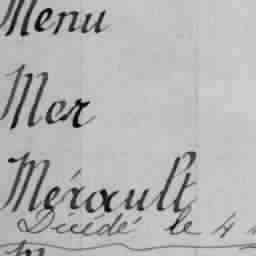 Menu
Mer
Mérault
Décédé le 4